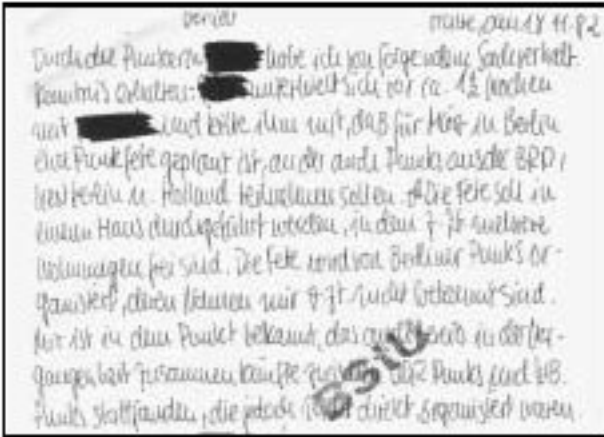 Bericht Halle, den 18.11.82
Durch die Punkerin habe ich von folgendem Sachverhalt
Kenntnis erhalten. unterhielt sich vor ca. 1½ Wochen
mit und teilte ihm mit, daß für März in Berlin
eine Punkfete geplant ist, an der auch Punks aus der BRD,
Westberlin u. Holland teilnehmen sollen. Die Fete soll in
einem Haus durchgeführt werden, in dem z.Zt. mehrere
Wohnungen frei sind. Die Fete wird von Berliner Punks or-
ganisiert, deren Namen mir z.Zt. nicht bekannt sind.
Mir ist in dem Punkt bekannt, das in der Ver-
gangenheit zusammenkünfte DDR Punks und WB.
Punks stattfanden, die jedoch nicht direkt organisiert waren.
BStU